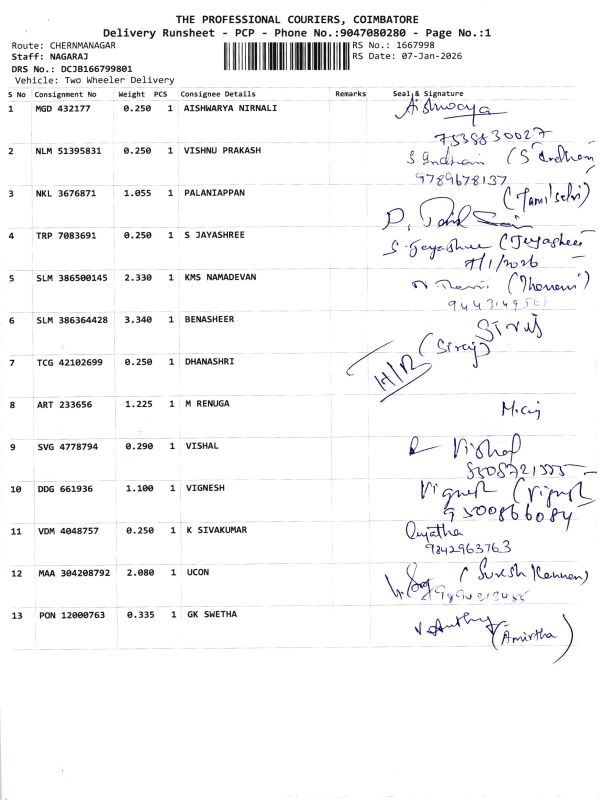 THE PROFESSIONAL COURIERS, COIMBATORE
Delivery Runsheet - PCP - Phone No.:9047080280 - Page No.:1
Route: CHERNMANAGAR RS No.: 1667998
Staff: NAGARAJ RS Date: 07-Jan-2026
DRS No.: DCJB166799801
Vehicle: Two Wheeler Delivery
S No Consignment No Weight PCS Consignee Details Remarks Seal & Signature
1 MGD 432177 0.250 1 AISHWARYA NIRNALI Aishwarya
7538830027
2 NLM 51395831 0.250 1 VISHNU PRAKASH
9789678137
3 NKL 3676871 1.055 1 PALANIAPPAN (Tamil selvi)
4 TRP 7083691 0.250 1 S JAYASHREE S. Jayashree (Jeyashree
7/1/2026
5 SLM 386500145 2.330 1 KMS NAMADEVAN
6 SLM 386364428 3.340 1 BENASHEER
(Siraj)
H/R
7 TCG 42102699 0.250 1 DHANASHRI
8 ART 233656 1.225 1 M RENUGA
9 SVG 4778794 0.290 1 VISHAL Vishal
10 DDG 661936 1.100 1 VIGNESH Vignesh
9500866084
11 VDM 4048757 0.250 1 K SIVAKUMAR
9842963763
12 MAA 304208792 2.080 1 UCON (Suresh Kannan)
13 PON 12000763 0.335 1 GK SWETHA
(Amirtha)